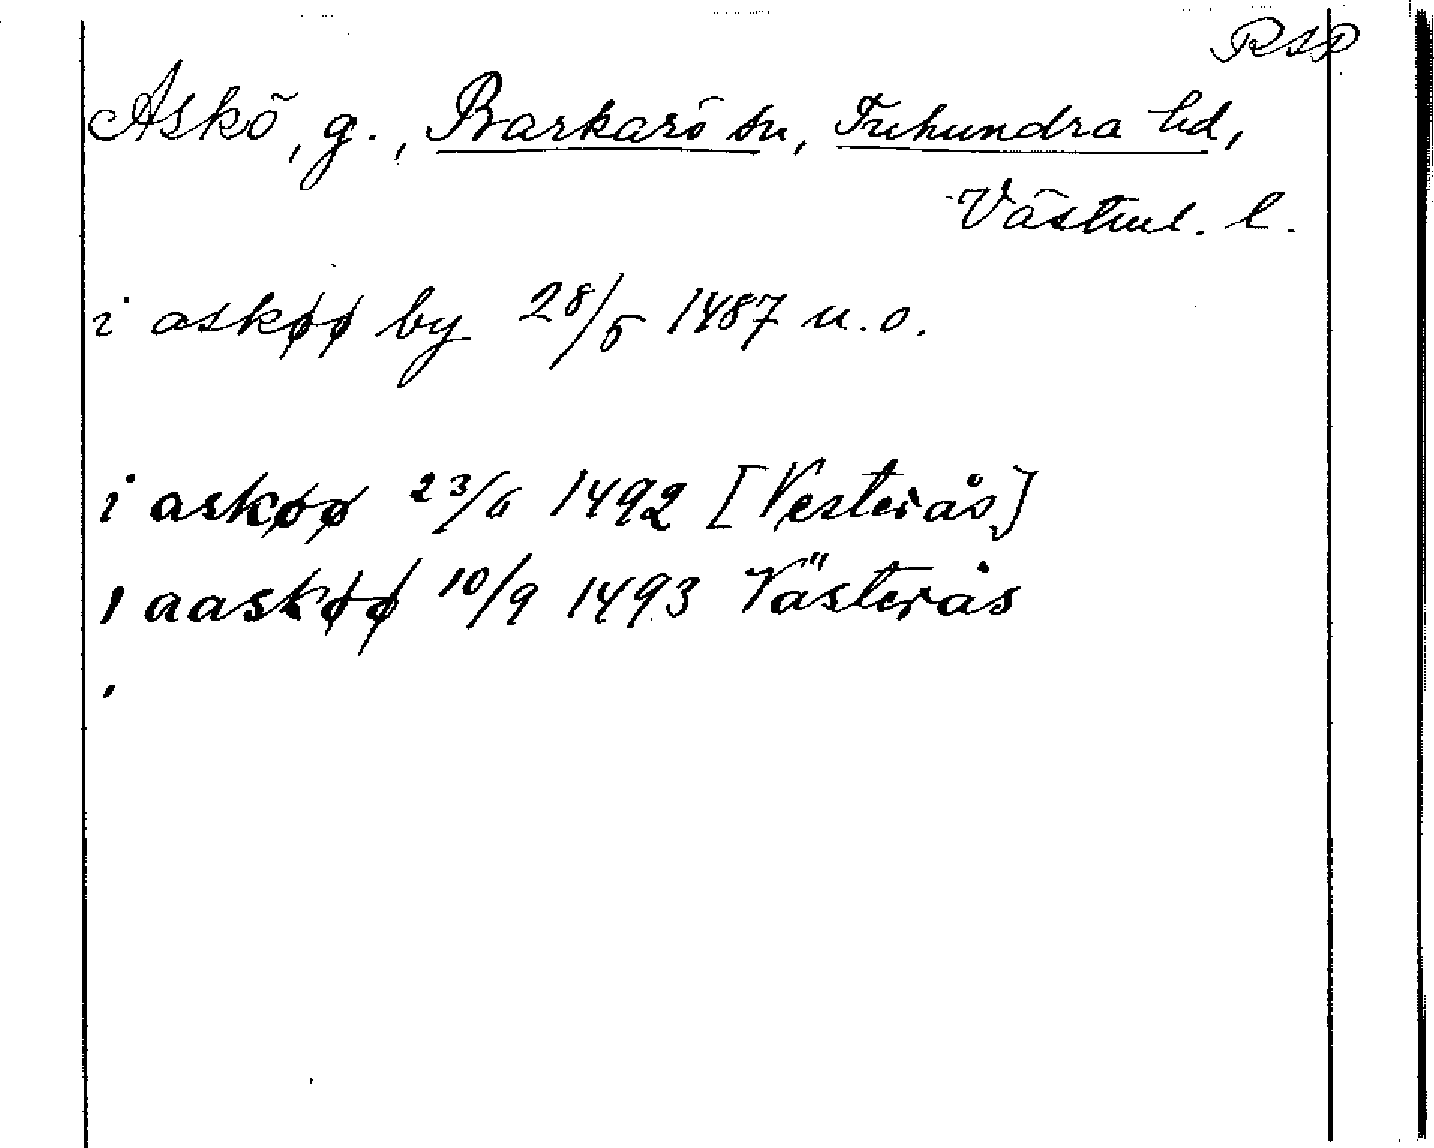 RAP
Askö, g., Barkarö sn, Tuhundra hd,
Västml. l.
i askøø by 28/5 1487 u.o.
i askøø 23/6 1492 [Vesterås]
i aaskøø 10/9 1493 Västerås